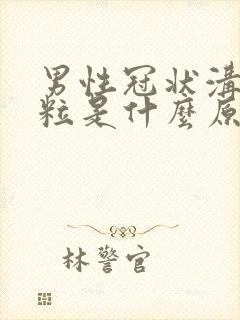 男性冠状溝
粒是什麼原
林警官